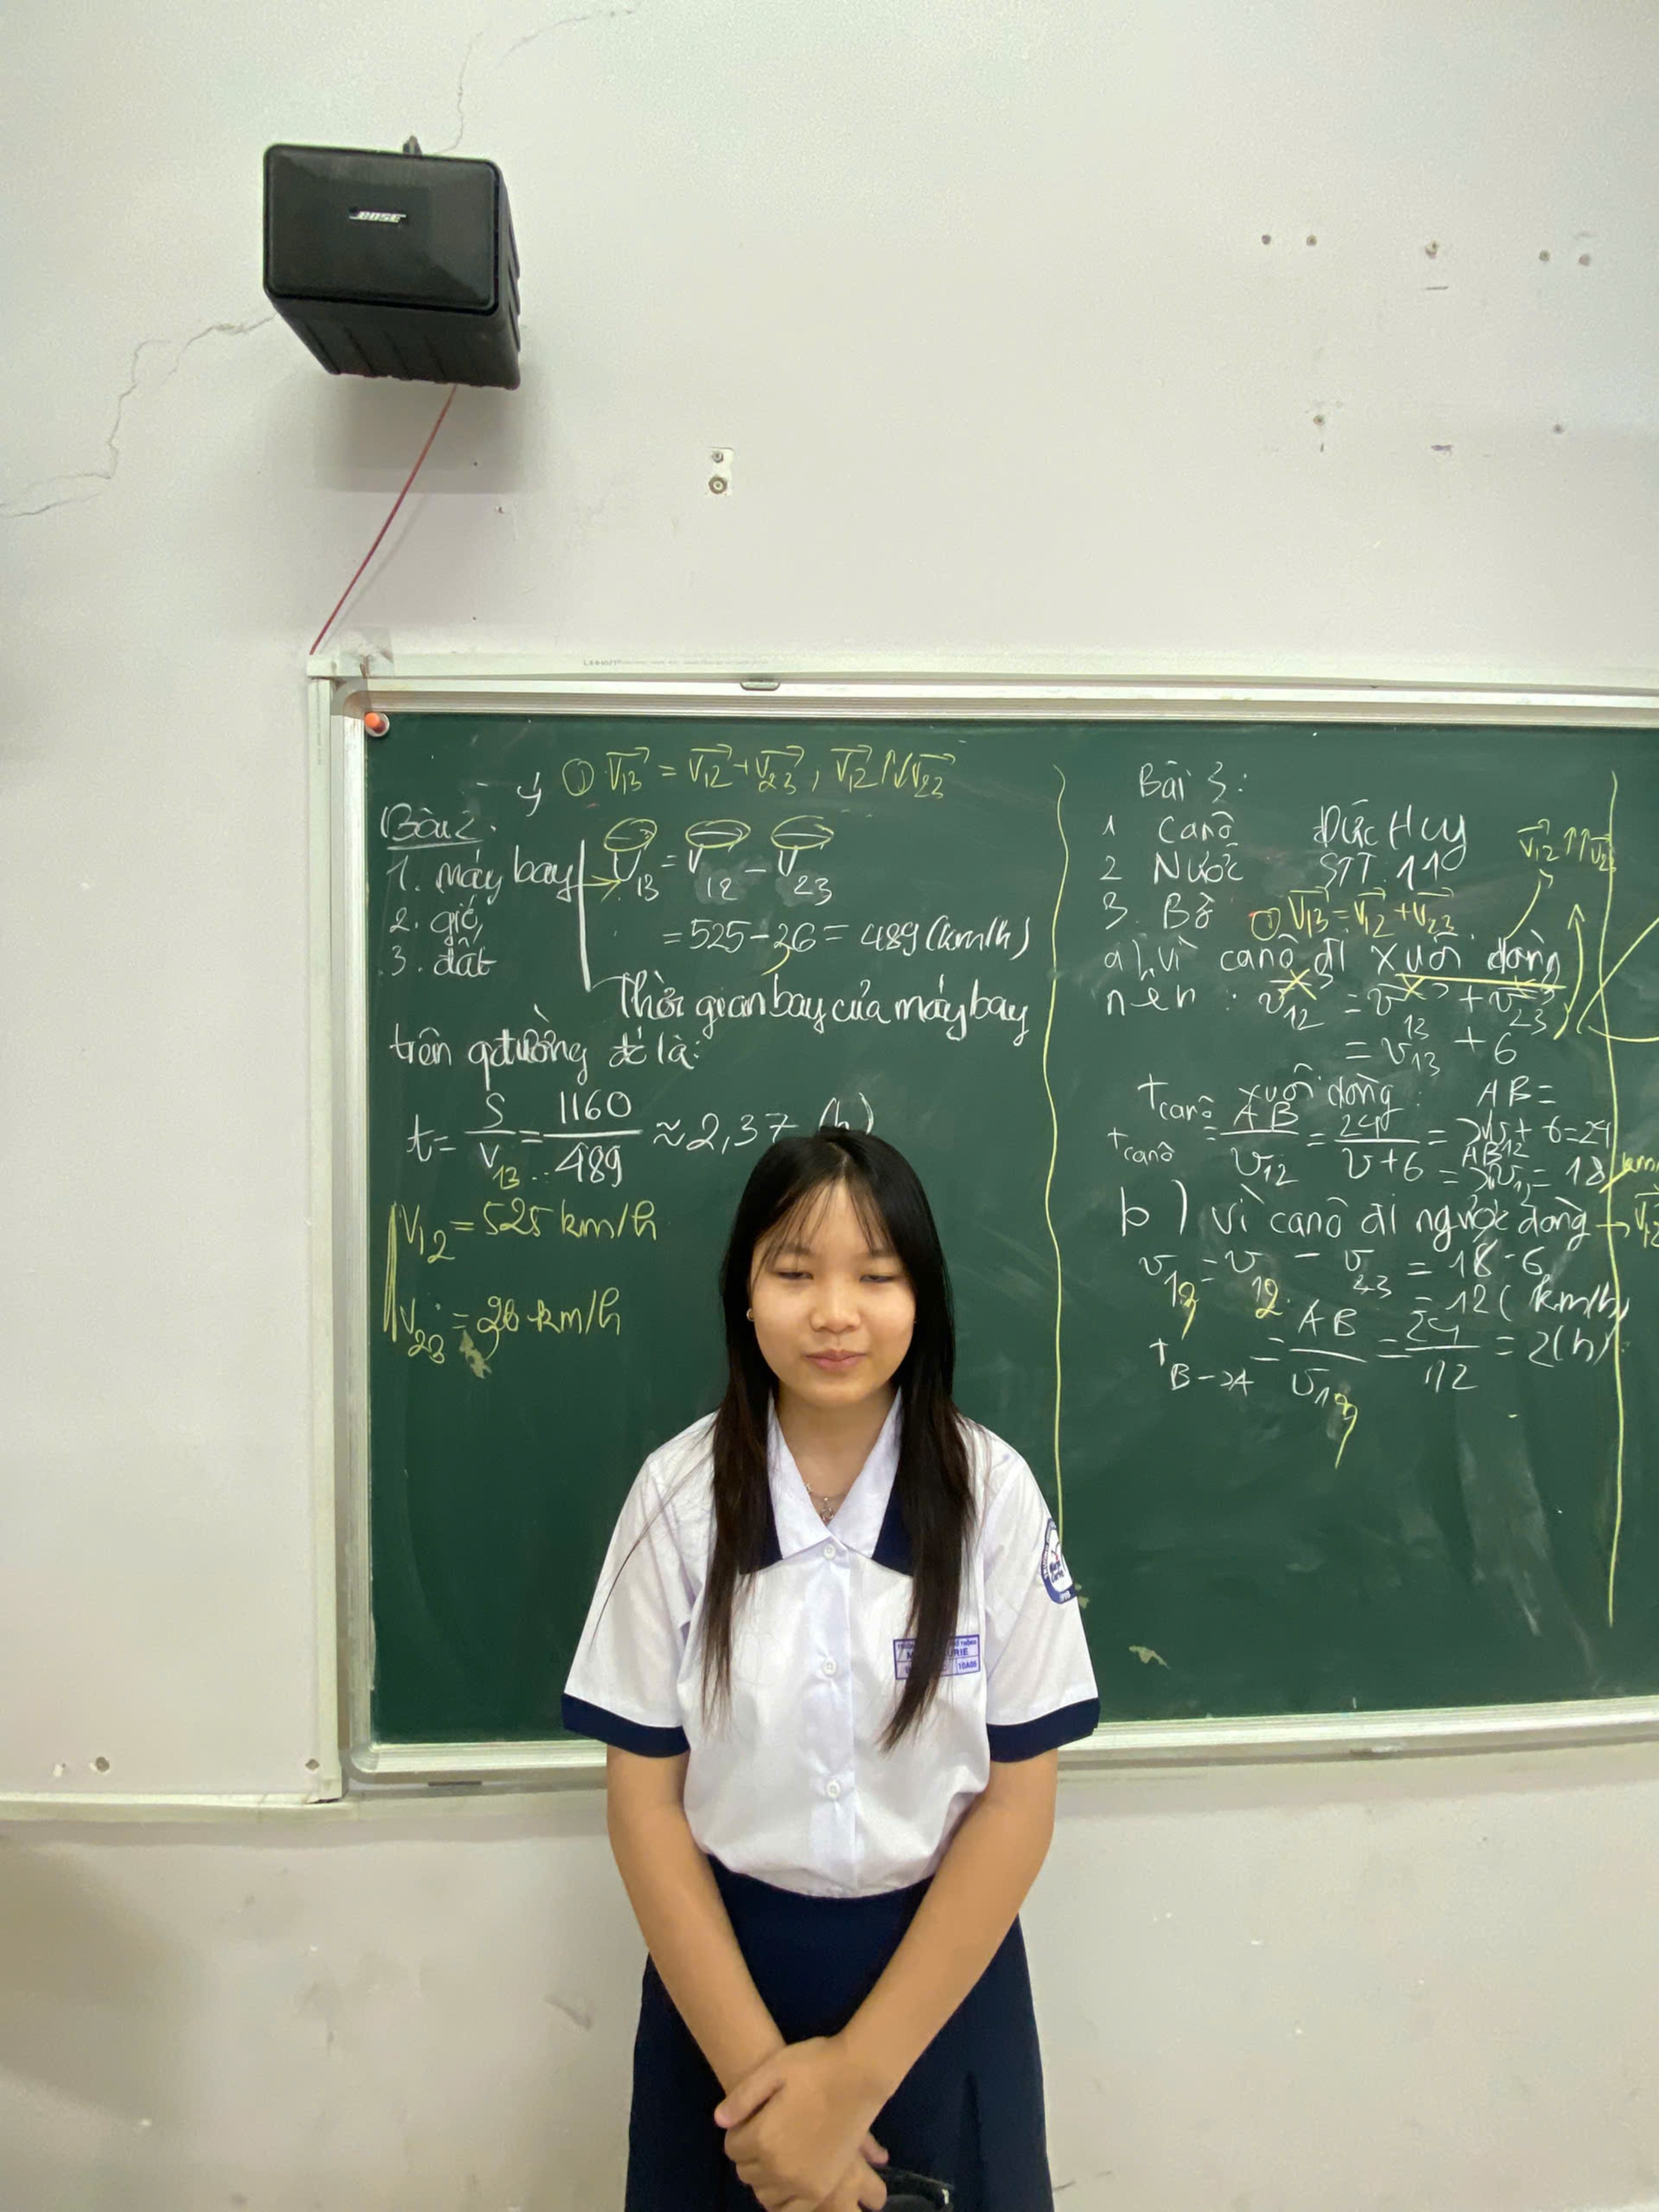 BOSE
- ý ① V13 = V12 + V23, V12 ↑↓ V23
Bài 2.
1. máy bay
2. gió
3. đất
V13 = V12 - V23
= 525 - 36 = 489 (km/h)
Thời gian bay của máy bay
trên qđường đó là:
t = S/V13 = 1160/489 ≈ 2,37 (h)
V12 = 525 km/h
V23 = 36 km/h
Bài 3:
1 Canô
2 Nước
3. Bờ
Đức Huy
STT. 11
V12 ↑↑ V23
① V13 = V12 + V23
a) Vì canô đi xuôi dòng
nên: v12 = v13 + v23
= v13 + 6
t canô xuôi dòng: AB =
t canô = AB/v12 = 24/v+6
+ 6 = 24
= 18 km
b) Vì canô đi ngược dòng → V12
v13 = v12 - v23 = 18 - 6
= 12 (km/h)
t B→A = AB/v13 = 24/12 = 2 (h)
10A06